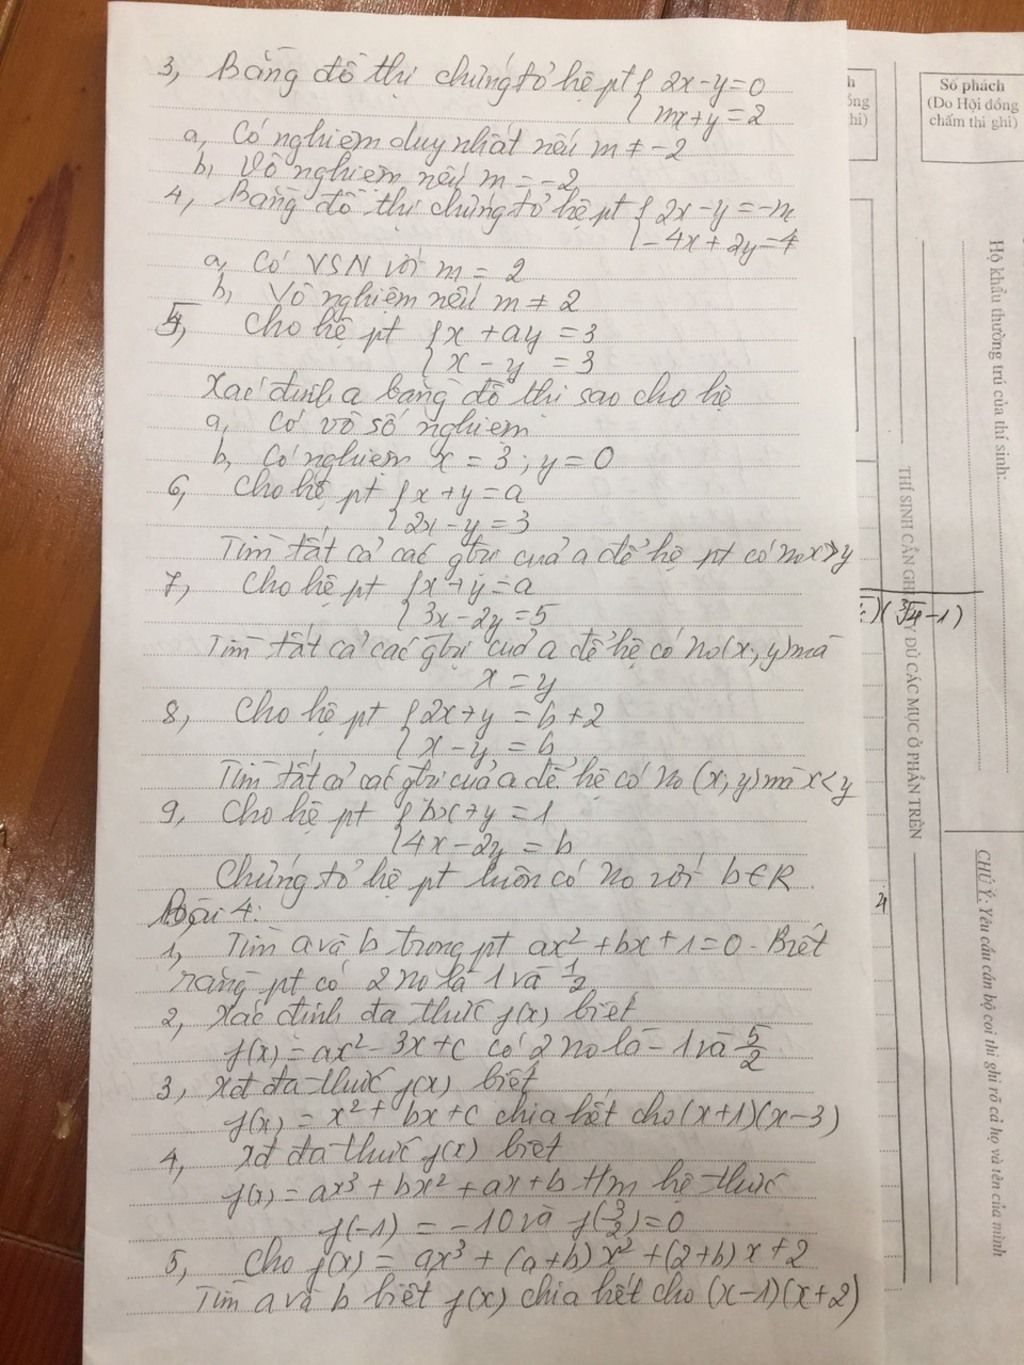 3, Bằng đồ thị chứng tỏ hệ pt { 2x - y = 0
mx + y = 2
a, Có nghiệm duy nhất nếu m ≠ -2
b, Vô nghiệm nếu m = -2
4, Bằng đồ thị chứng tỏ hệ pt { 2x - y = -m
-4x + 2y = 4
a, Có VSN với m = 2
b, Vô nghiệm nếu m ≠ 2
5, Cho hệ pt { x + ay = 3
x - y = 3
Xác định a bằng đồ thị sao cho hệ
a, Có vô số nghiệm
b, Có nghiệm x = 3 ; y = 0
6, Cho hệ pt { x + y = a
2x - y = 3
Tìm tất cả các gtrị của a để hệ pt có no x > y
7, Cho hệ pt { x + y = a
3x - 2y = 5
Tìm tất cả các gtrị của a để hệ có no (x; y) mà
x = y
8, Cho hệ pt { 2x + y = b + 2
x - y = b
Tìm tất cả các gtrị của a để hệ có no (x; y) mà x < y
9, Cho hệ pt { bx + y = 1
4x - 2y = b
Chứng tỏ hệ pt luôn có no với b ∈ R.
Bài 4:
1, Tìm a và b trong pt ax² + bx + 1 = 0. Biết
rằng pt có 2 no là 1 và 1/2
2, Xác định đa thức f(x) biết
f(x) = ax² - 3x + c có 2 no là -1 và 5/2
3, Xđ đa thức f(x) biết
f(x) = x² + bx + c chia hết cho (x+1)(x-3)
4, Xđ đa thức f(x) biết
f(x) = ax³ + bx² + ax + b t/m hệ thức
f(-1) = -10 và f(3/2) = 0
5, Cho f(x) = ax³ + (a+b)x² + (2+b)x + 2
Tìm a và b biết f(x) chia hết cho (x-1)(x+2)
Số phách
(Do Hội đồng
chấm thi ghi)
Họ khẩu thường trú của thí sinh:
THÍ SINH CẦN GHI ĐỦ CÁC MỤC Ở PHẦN TRÊN
(∛4 - 1)
CHÚ Ý: Yêu cầu cán bộ coi thi ghi rõ cả họ và tên của mình